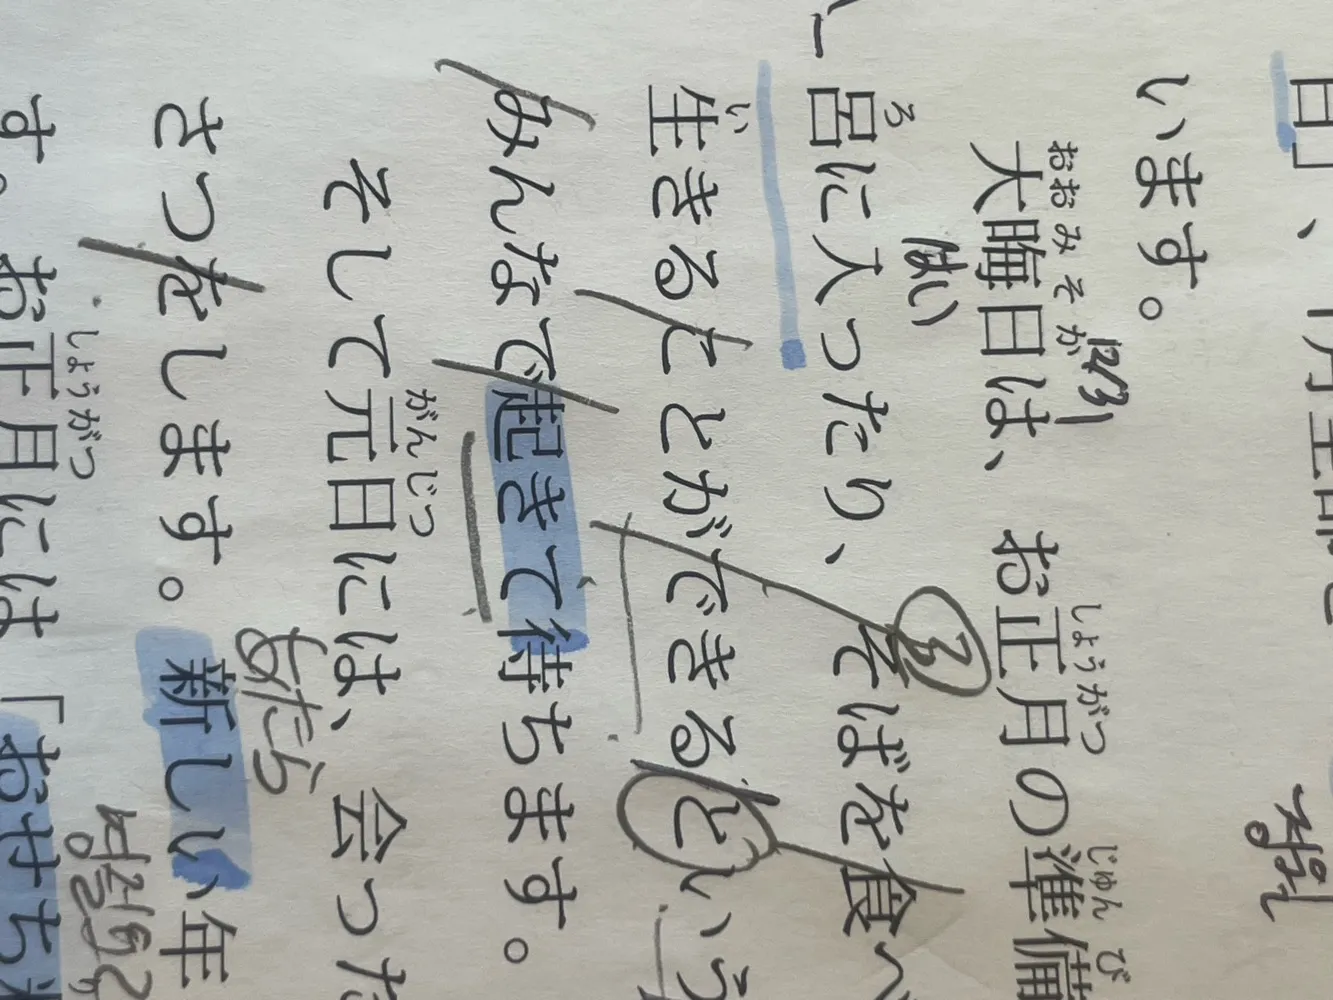 日」、
います。
おおみそか しょうがつ じゅんび
大晦日は、お正月の準備
12/31
はい
ろ
呂に入ったり、そばを食べ
3
い
生きることができるという
みんなで起きて待ちます。
がんじつ
そして元日には、会った
あたら
さつをします。新しい年
しょうがつ
す。お正月には「おせち